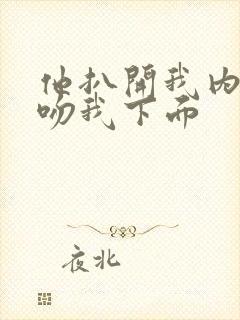 他扒開我内
吻我下面
夜北